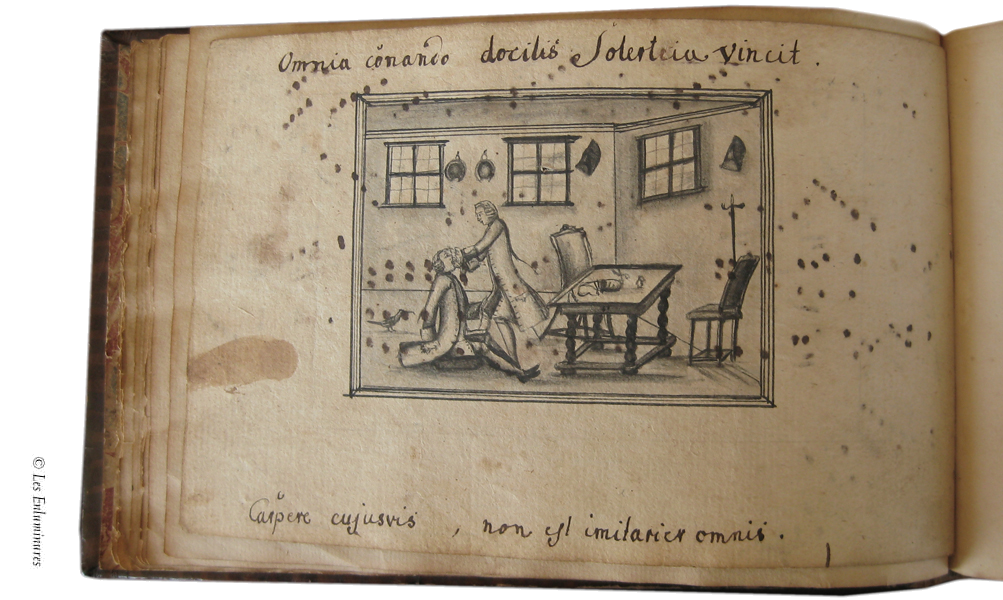 Omnia cõnando docilis Solerteia vincit .
Carpere cujusvis , non est imitarier omnis .
© Les Enluminures